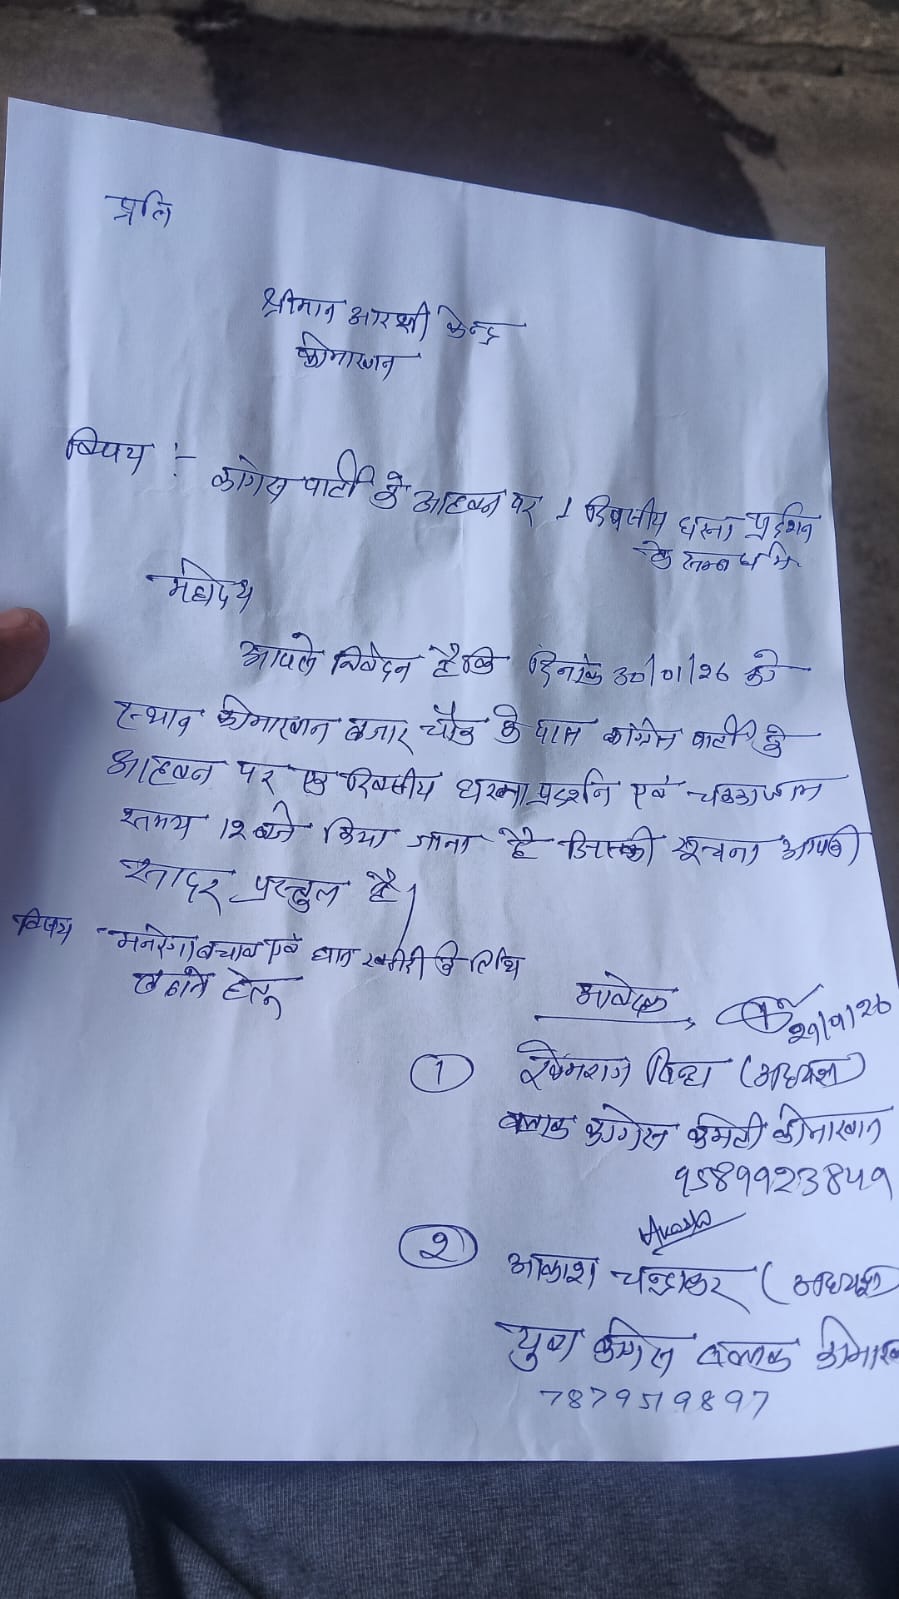 प्रति
श्रीमान आरक्षी केन्द्र
कोमाखान
विषय :- कांग्रेस पार्टी के आहवन पर 1 दिवसीय धरना प्रर्दशन
के सम्बंध में
महोदय
आपसे निवेदन है कि दिनांक 30/01/26 को
स्थान कोमाखान बजार चौक के पास कांग्रेस पार्टी के
आहवन पर एक दिवसीय धरना प्रदर्शन एवं चक्काजाम
समय 12 बजे किया जाना है जिसकी सूचना आपको
सादर प्रस्तुत है।
विषय - मनरेगा बचाव एवं धान खरीदी के तिथि
बढ़ाने हेतू
आवेदक
29/1/26
① खेमराज (अध्यक्ष)
ब्लाक कांग्रेस कमेटी कोमाखान
९५8९९२३8५९
② आकाश चन्द्राकर (अध्यक्ष)
युवा कांग्रेस ब्लाक
7879519897